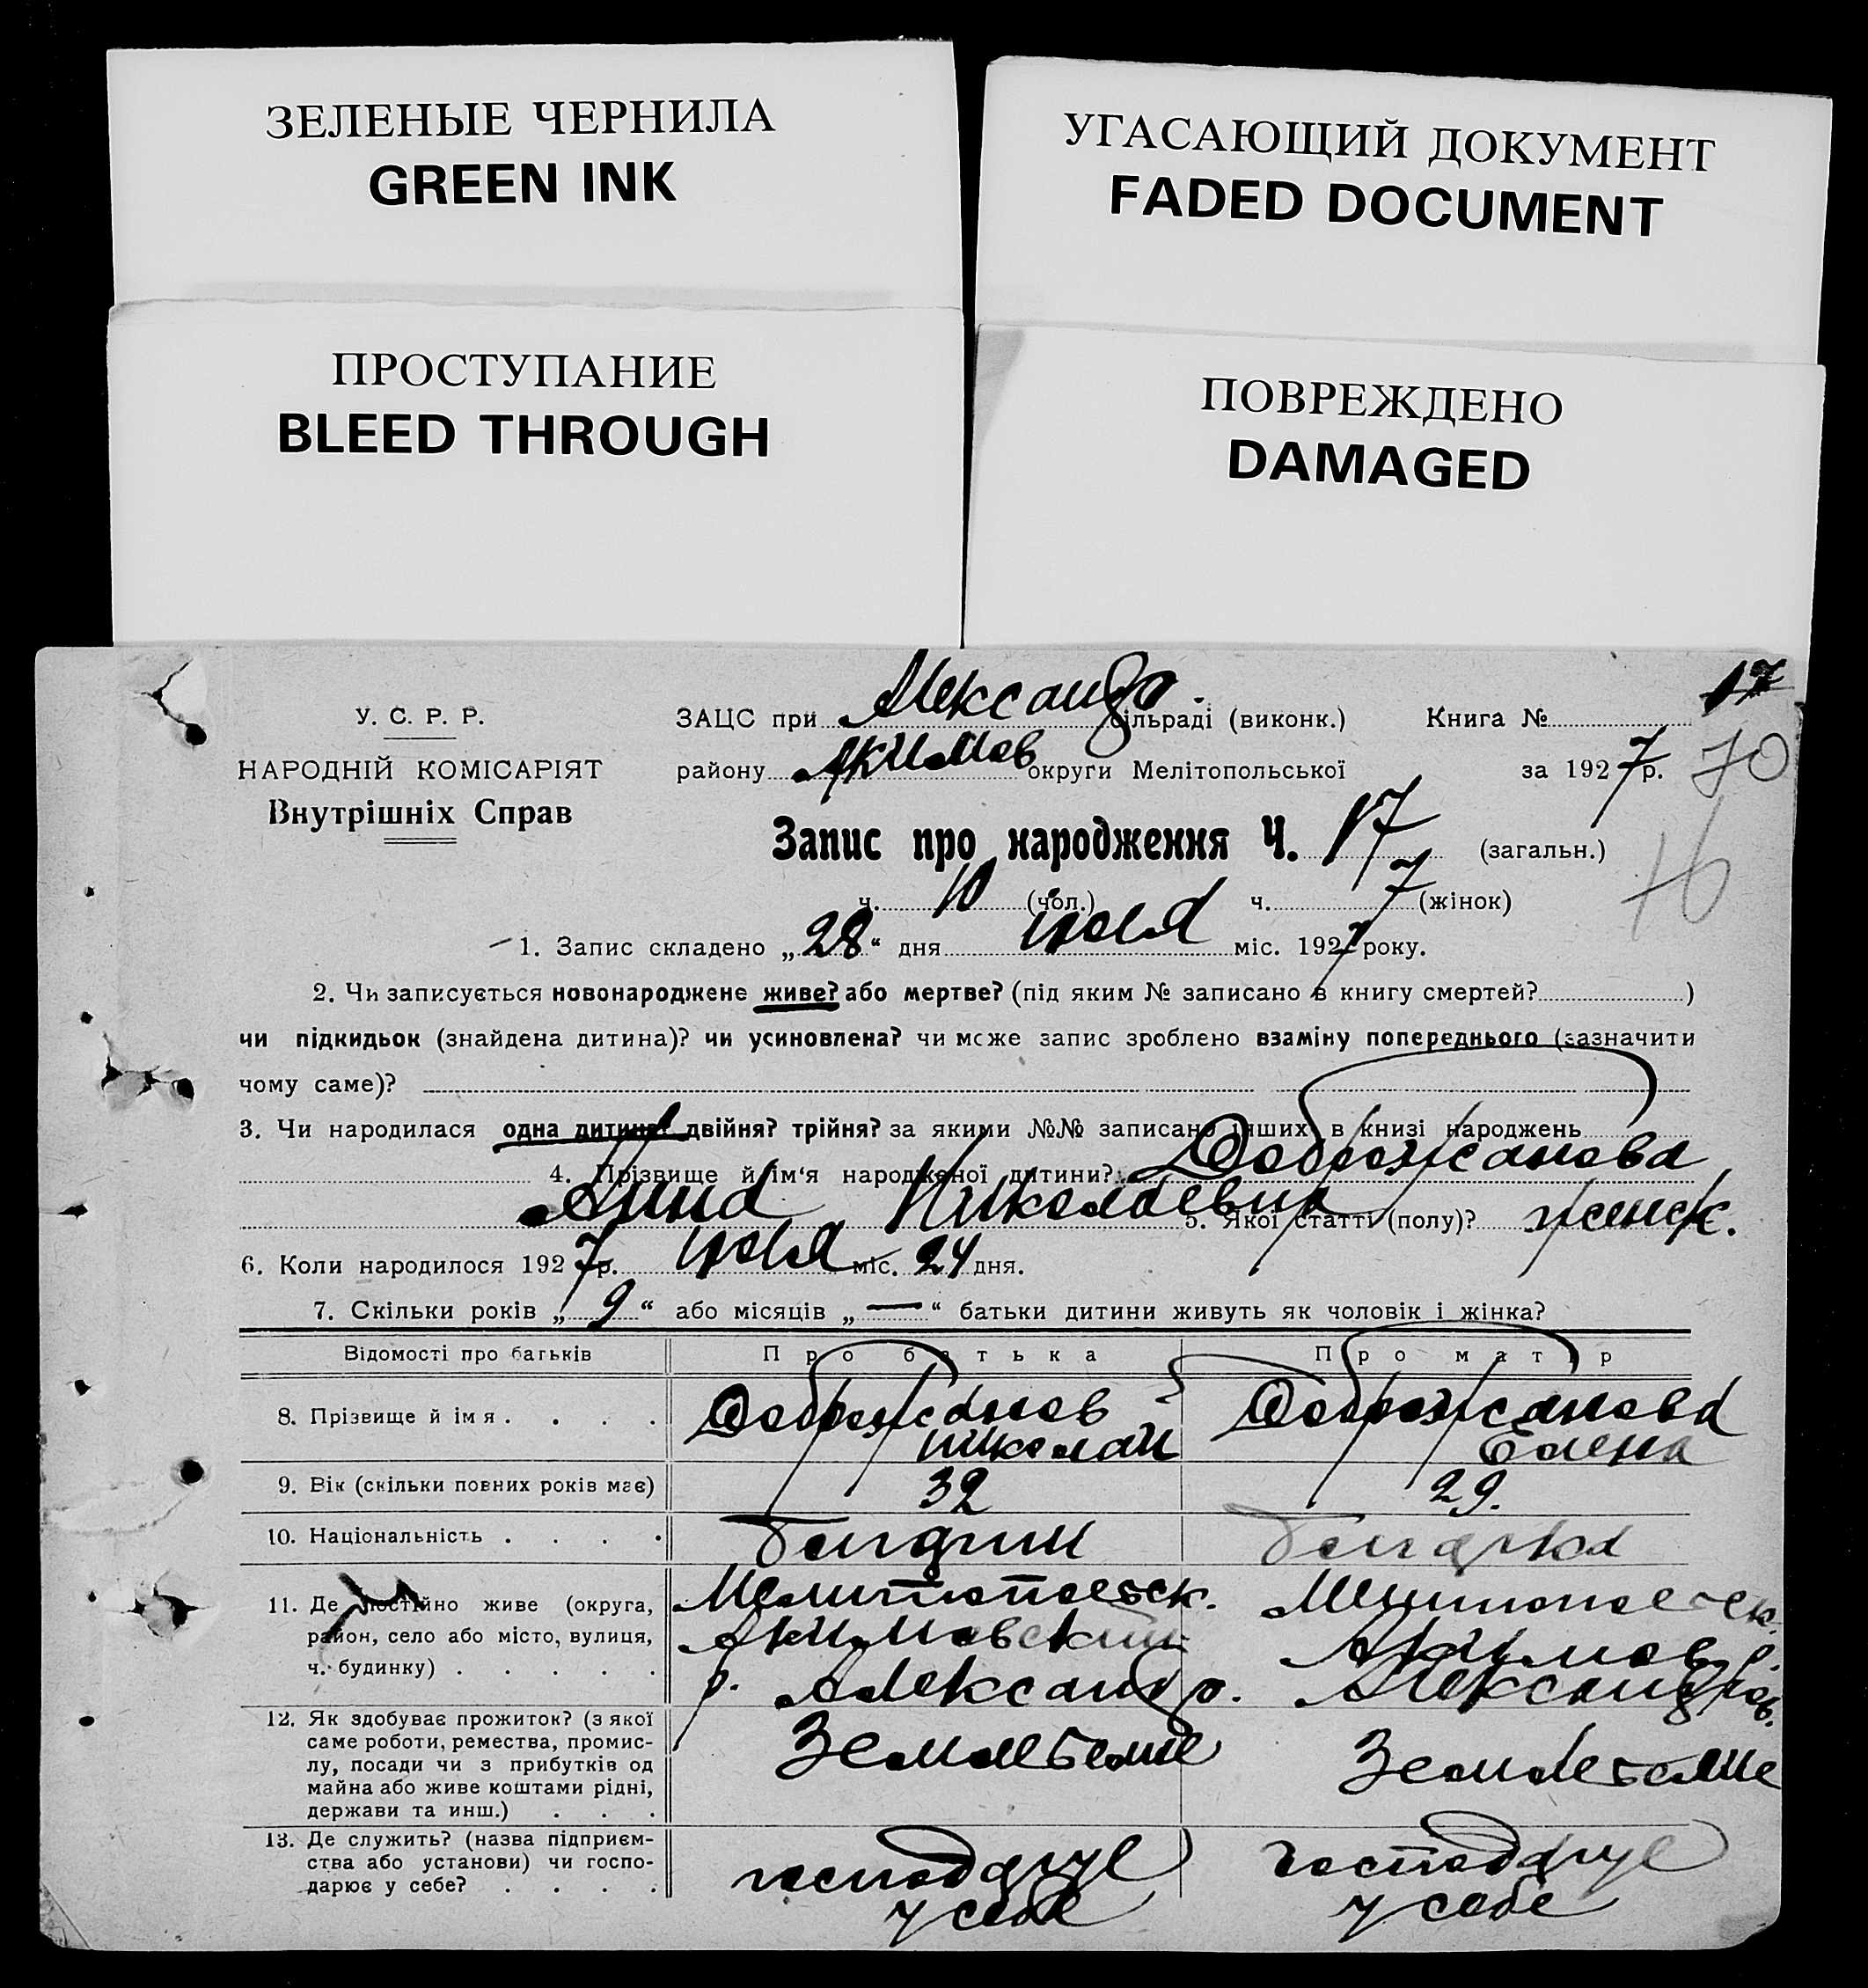 ЗЕЛЕНЫЕ ЧЕРНИЛА
GREEN INK
УГАСАЮЩИЙ ДОКУМЕНТ
FADED DOCUMENT
ПРОСТУПАНИЕ
BLEED THROUGH
ПОВРЕЖДЕНО
DAMAGED
У. С. Р. Р.
НАРОДНІЙ КОМІСАРІЯТ
Внутрішніх Справ
17
ЗАЦС при Александр. сільраді (виконк.) Книга №
району Акимов округи Мелітопольської за 1927 р. 70
Запис про народження Ч. 17 (загальн.)
16
ч. 10 (чол.) ч. 7 (жінок)
1. Запис складено „28“ дня июля міс. 1927 року.
2. Чи записується новонароджене живе? або мертве? (під яким № записано в книгу смертей? )
чи підкидьок (знайдена дитина)? чи усиновлена? чи може запис зроблено взаміну попереднього (зазначити
чому саме)?
3. Чи народилася одна дитина? двійня? трійня? за якими №№ записано інших в книзі народжень
4. Прізвище й ім‘я народженої дитини? Доброжанова
Анна Николаевна 5. Якої статті (полу)? женск.
6. Коли народилося 1927 р. июля міс. 24 дня.
7. Скільки років „9“ або місяців „—“ батьки дитини живуть як чоловік і жінка?
Відомості про батьків Про батька Про матір
8. Прізвище й імя . . . . Доброжанов Николай Доброжанова Елена
9. Вік (скільки повних років має) 32 29.
10. Національність . . . .
11. Де постійно живе (округа, Мелитопольск. Мелитопольск.
район, село або місто, вулиця, Акимовский Акимов. р.
ч. будинку) . . . . . р. Александр. Александров.
12. Як здобуває прожиток? (з якої
саме роботи, ремества, промис-
лу, посади чи з прибутків од
майна або живе коштами рідні,
держави та инш.) . . .
13. Де служить? (назва підприєм-
ства або установи) чи госпо-
дарює у себе? . . . .
у себе у себе